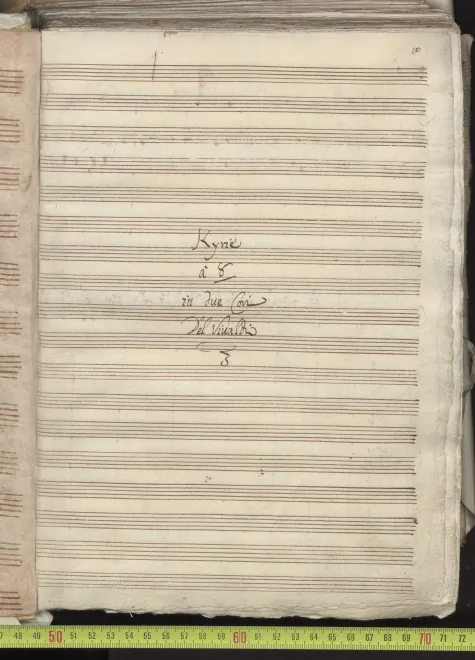 Kyrie
à 8
in due Cori
Del Vivaldi
47 48 49 50 51 52 53 54 55 56 57 58 59 60 61 62 63 64 65 66 67 68 69 70 71 72